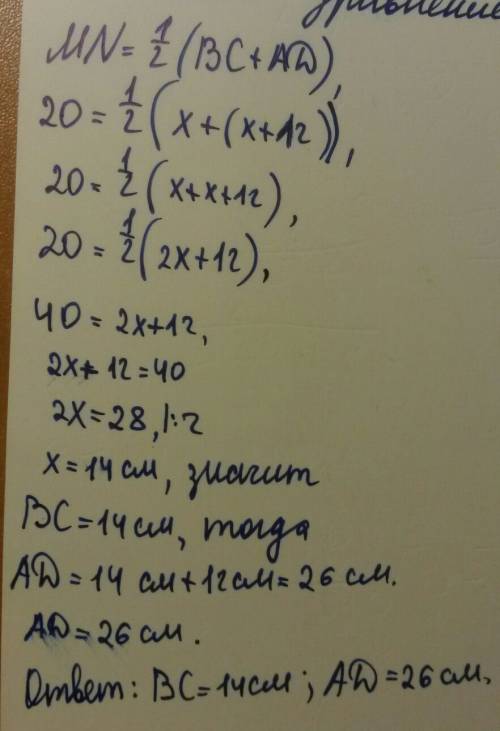 уравнение
MN = 1/2 (BC + AD),
20 = 1/2 (x + (x + 12)),
20 = 1/2 (x + x + 12),
20 = 1/2 (2x + 12),
40 = 2x + 12,
2x + 12 = 40
2x = 28, |:2
x = 14 см, значит
BC = 14 см, тогда
AD = 14 см + 12 см = 26 см.
AD = 26 см.
Ответ: BC = 14 см; AD = 26 см.